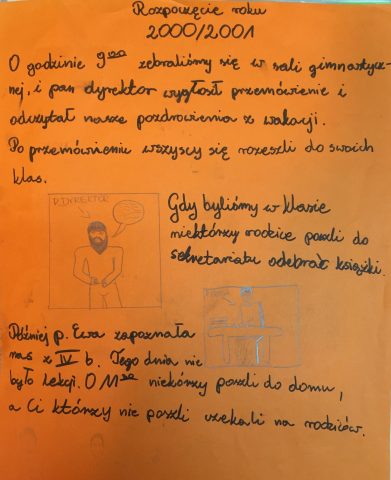 Rozpoczęcie roku
2000/2001
O godzinie 9⁰⁰ zebraliśmy się w sali gimnastycz-
nej, i pan dyrektor wygłosł przemówienie i
odczytał nasze pozdrowienia z wakacji.
Po przemówieniu wszyscy się rozeszli do swoich
klas.
DYREKTOR
Gdy byliśmy w klasie
niektórzy rodzice poszli do
sekretariatu odebrać książki.
Później p. Ewa zapoznała
nas z IV b. Tego dnia nie
było lekcji. O 11⁰⁰ niekórzy poszli do domu,
a Ci którzy nie poszli czekali na rodziców.